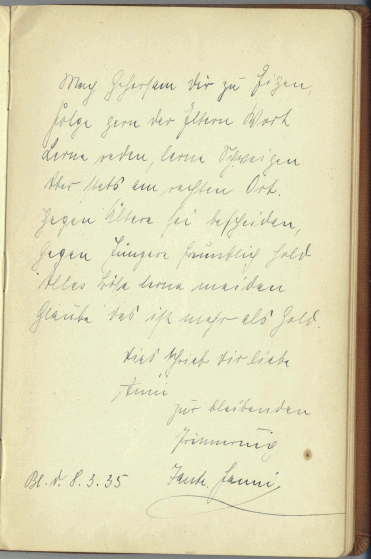 Mach Gehorsam dir zu Eigen,
folge gern der Eltern Wort
Lerne reden, lerne Schweigen
Aber stets am rechten Ort.
Gegen Ältere sei bescheiden,
Gegen Jüngere freundlich hold
Alles böse lerne meiden
Glaube das ist mehr als Gold.
dies schrieb dir liebe
Anni
zur bleibenden
Erinnerung
Bl. d. 8.3.35 Tante Fanni